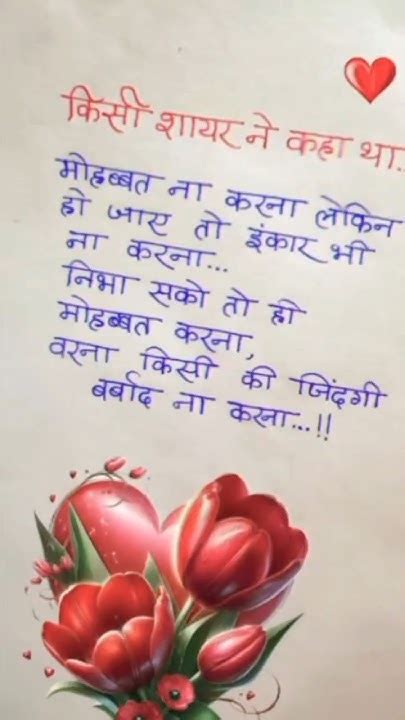 किसी शायर ने कहा था..
मोहब्बत ना करना लेकिन
हो जाए तो इंकार भी
ना करना...
निभा सको तो ही
मोहब्बत करना,
वरना किसी की जिंदगी
बर्बाद ना करना...!!